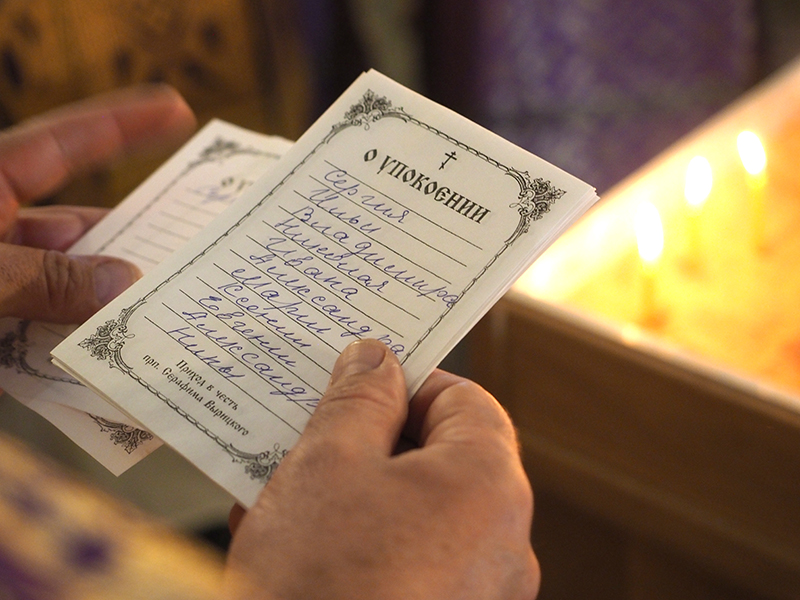 О УПОКОЕНИИ
Сергия
Ильи
Владимира
Николая
Ивана
Александра
Марии
Ксении
Евгении
Александра
Нины
Приход в честь
прп. Серафима Вырицкого